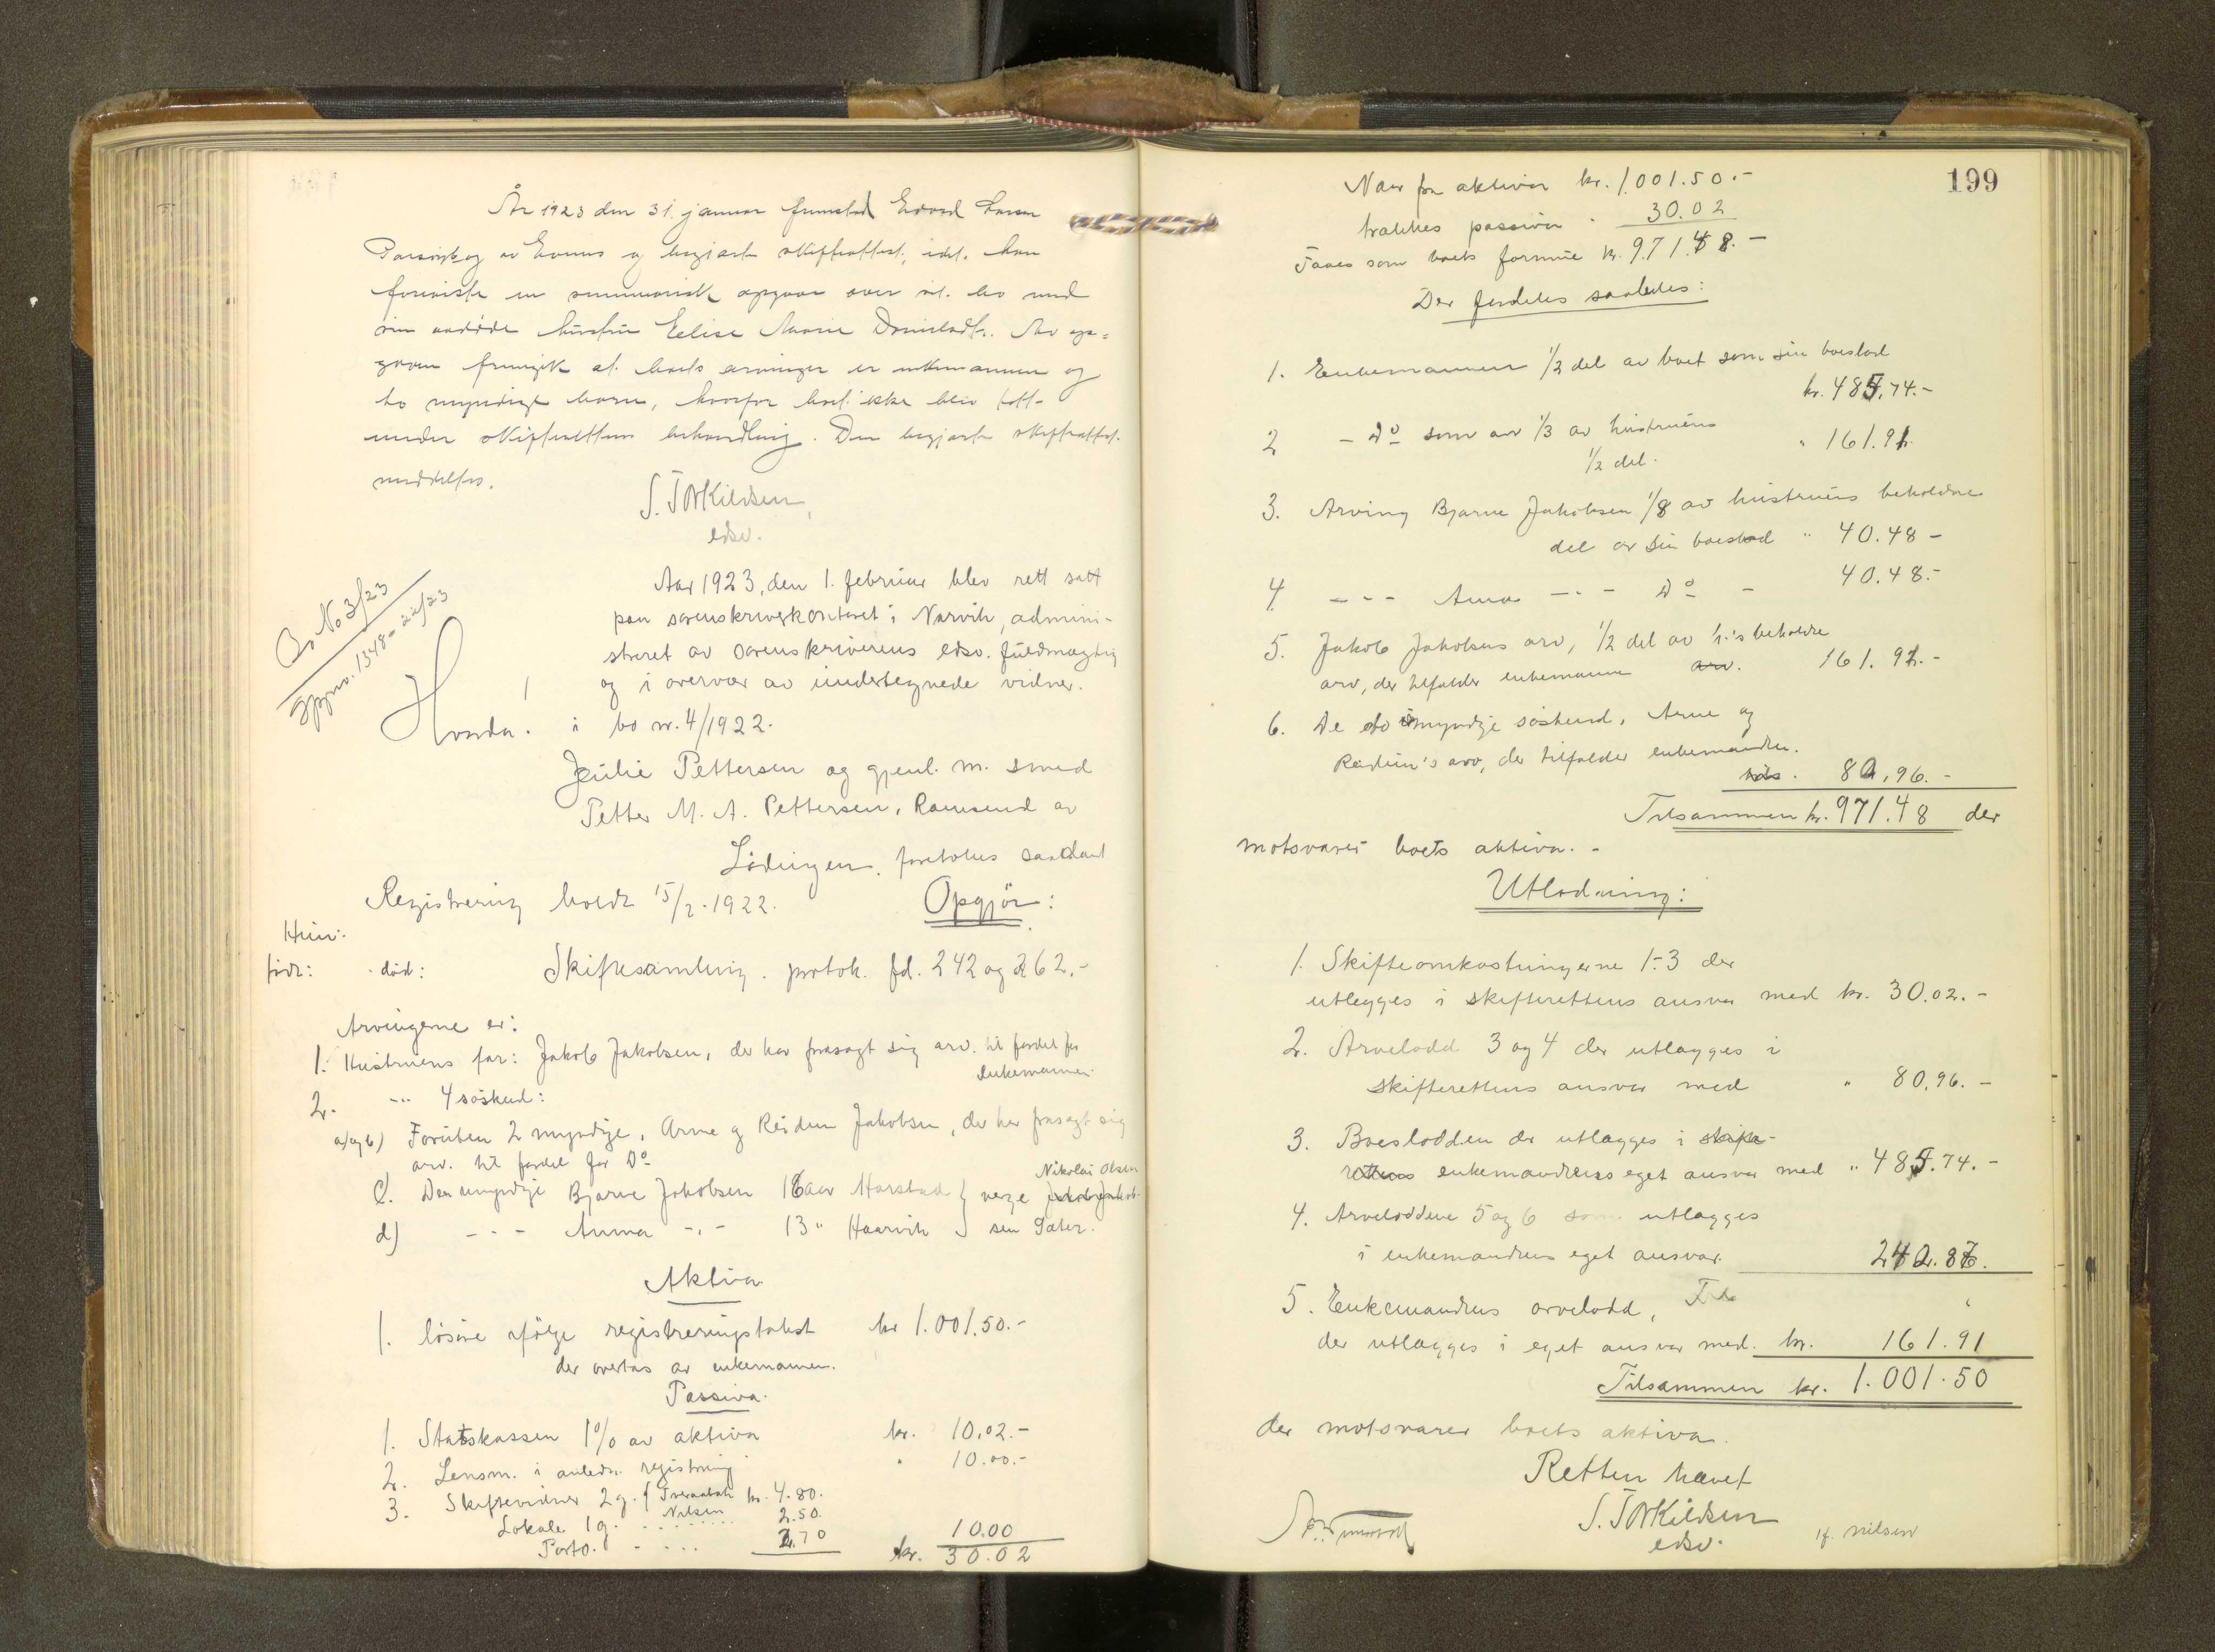 År 1923 den 31. januar fremstod Edvard Larsen
av Evenes og begjærte skifteattest, idet han
foreviste en summarisk opgave over sit bo med
sin avdøde hustru Elise Marie Av op=
gaven fremgik at boets arvinger er enkemannen og
to myndige barn, hvorfor boet ikke blev tatt
under skifterettens behandling. Den begjærte skifteattest
meddeltes.
S. Torkildsen,
edsv.
Aar 1923, den 1. februar blev rett satt
paa sorenskriverkontoret i Narvik, admini-
streret av sorenskriverens edsv. fuldmægtig
og i overvær av undertegnede vidner.
Br No 3/23
Gpno. 1348 - 22/23
Hvorda! i bo nr. 4/1922.
Julie Pettersen og gjenl. m. smed
Petter M. A. Pettersen, Ramsund av
Lødingen. foretokes saadant
Registrering holdt 15/2. 1922. Opgjör:
Hun:
född: död: Skiftesamling. protok. fol. 242 og 262.-
Arvingerne er:
1. Hustruens far: Jakob Jakobsen, der har frasagt sig arv. til fordel for
enkemannen.
2. -"- 4 söskend:
a) og b) Foruten 2 myndige, Arne og Reidun Jakobsen, der har frasagt sig
arv. til fordel for Do
Nikolai Olsen
C. Den umyndige Bjarne Jakobsen 16 aar Harstad } verge
d) - - - Anna -,- 13 " Haarvik sen Sæter.
Aktiva
1. lösöre ifölge registreringstakst kr 1.001.50.-
der overtas av enkemannen.
Passiva.
1. Statskassen 1% av aktiva kr. 10.02.-
2. Lensm. i anledn. registrering " 10.00.-
3. Skiftevidner 2 g. { kr. 4.80.
Nilsen
Lokale 1 g. . . . . . . . 2.50.
Porto. - . . . 2.70 10.00
kr. 30.02
199
Naar fra aktiva kr. 1.001.50.-
trækkes passiva " 30.02
Faaes som boets formue kr. 971.48.-
Der fordeles saaledes:
1. Enkemannen 1/2 del av boet som sin boeslod
kr. 485,74.-
2 - Do som arv 1/3 av hustruens
1/2 del. " 161.91.
3. Arving Bjarne Jakobsen 1/8 av hustruens beholdne
del av sin boeslod " 40.48 -
4 - - - Anna - - - Do - 40.48.-
5. Jakob Jakobsens arv, 1/2 del av h.'s beholdne
arv, der tilfalder enkemannen arv. 161.91.-
6. De to myndige söskend, Arne og
Reidun's arv, der tilfalder enkemanden.
80,96.-
Tilsammen kr. 971.48 der
motsvarer boets aktiva. -
Utlodning:
1. Skifteomkostningerne 1-3 der
utlegges i skifterettens ansvar med kr. 30.02.-
2. Arvelodd 3 og 4 der utlægges i
skifterettens ansvar med " 80,96.-
3. Boeslodden der utlægges i skifte-
rettens enkemandens eget ansvar med " 485.74.-
4. Arveloddene 5 og 6 som utlægges
i enkemandens eget ansvar. 242.87.
5. Enkemandens arvelodd,
der utlægges i eget ansvar med. kr. 161.91
Tilsammen kr. 1.001.50
der motsvarer boets aktiva.
Retten hævet
S. Torkildsen
edsv.
H. Nilsen